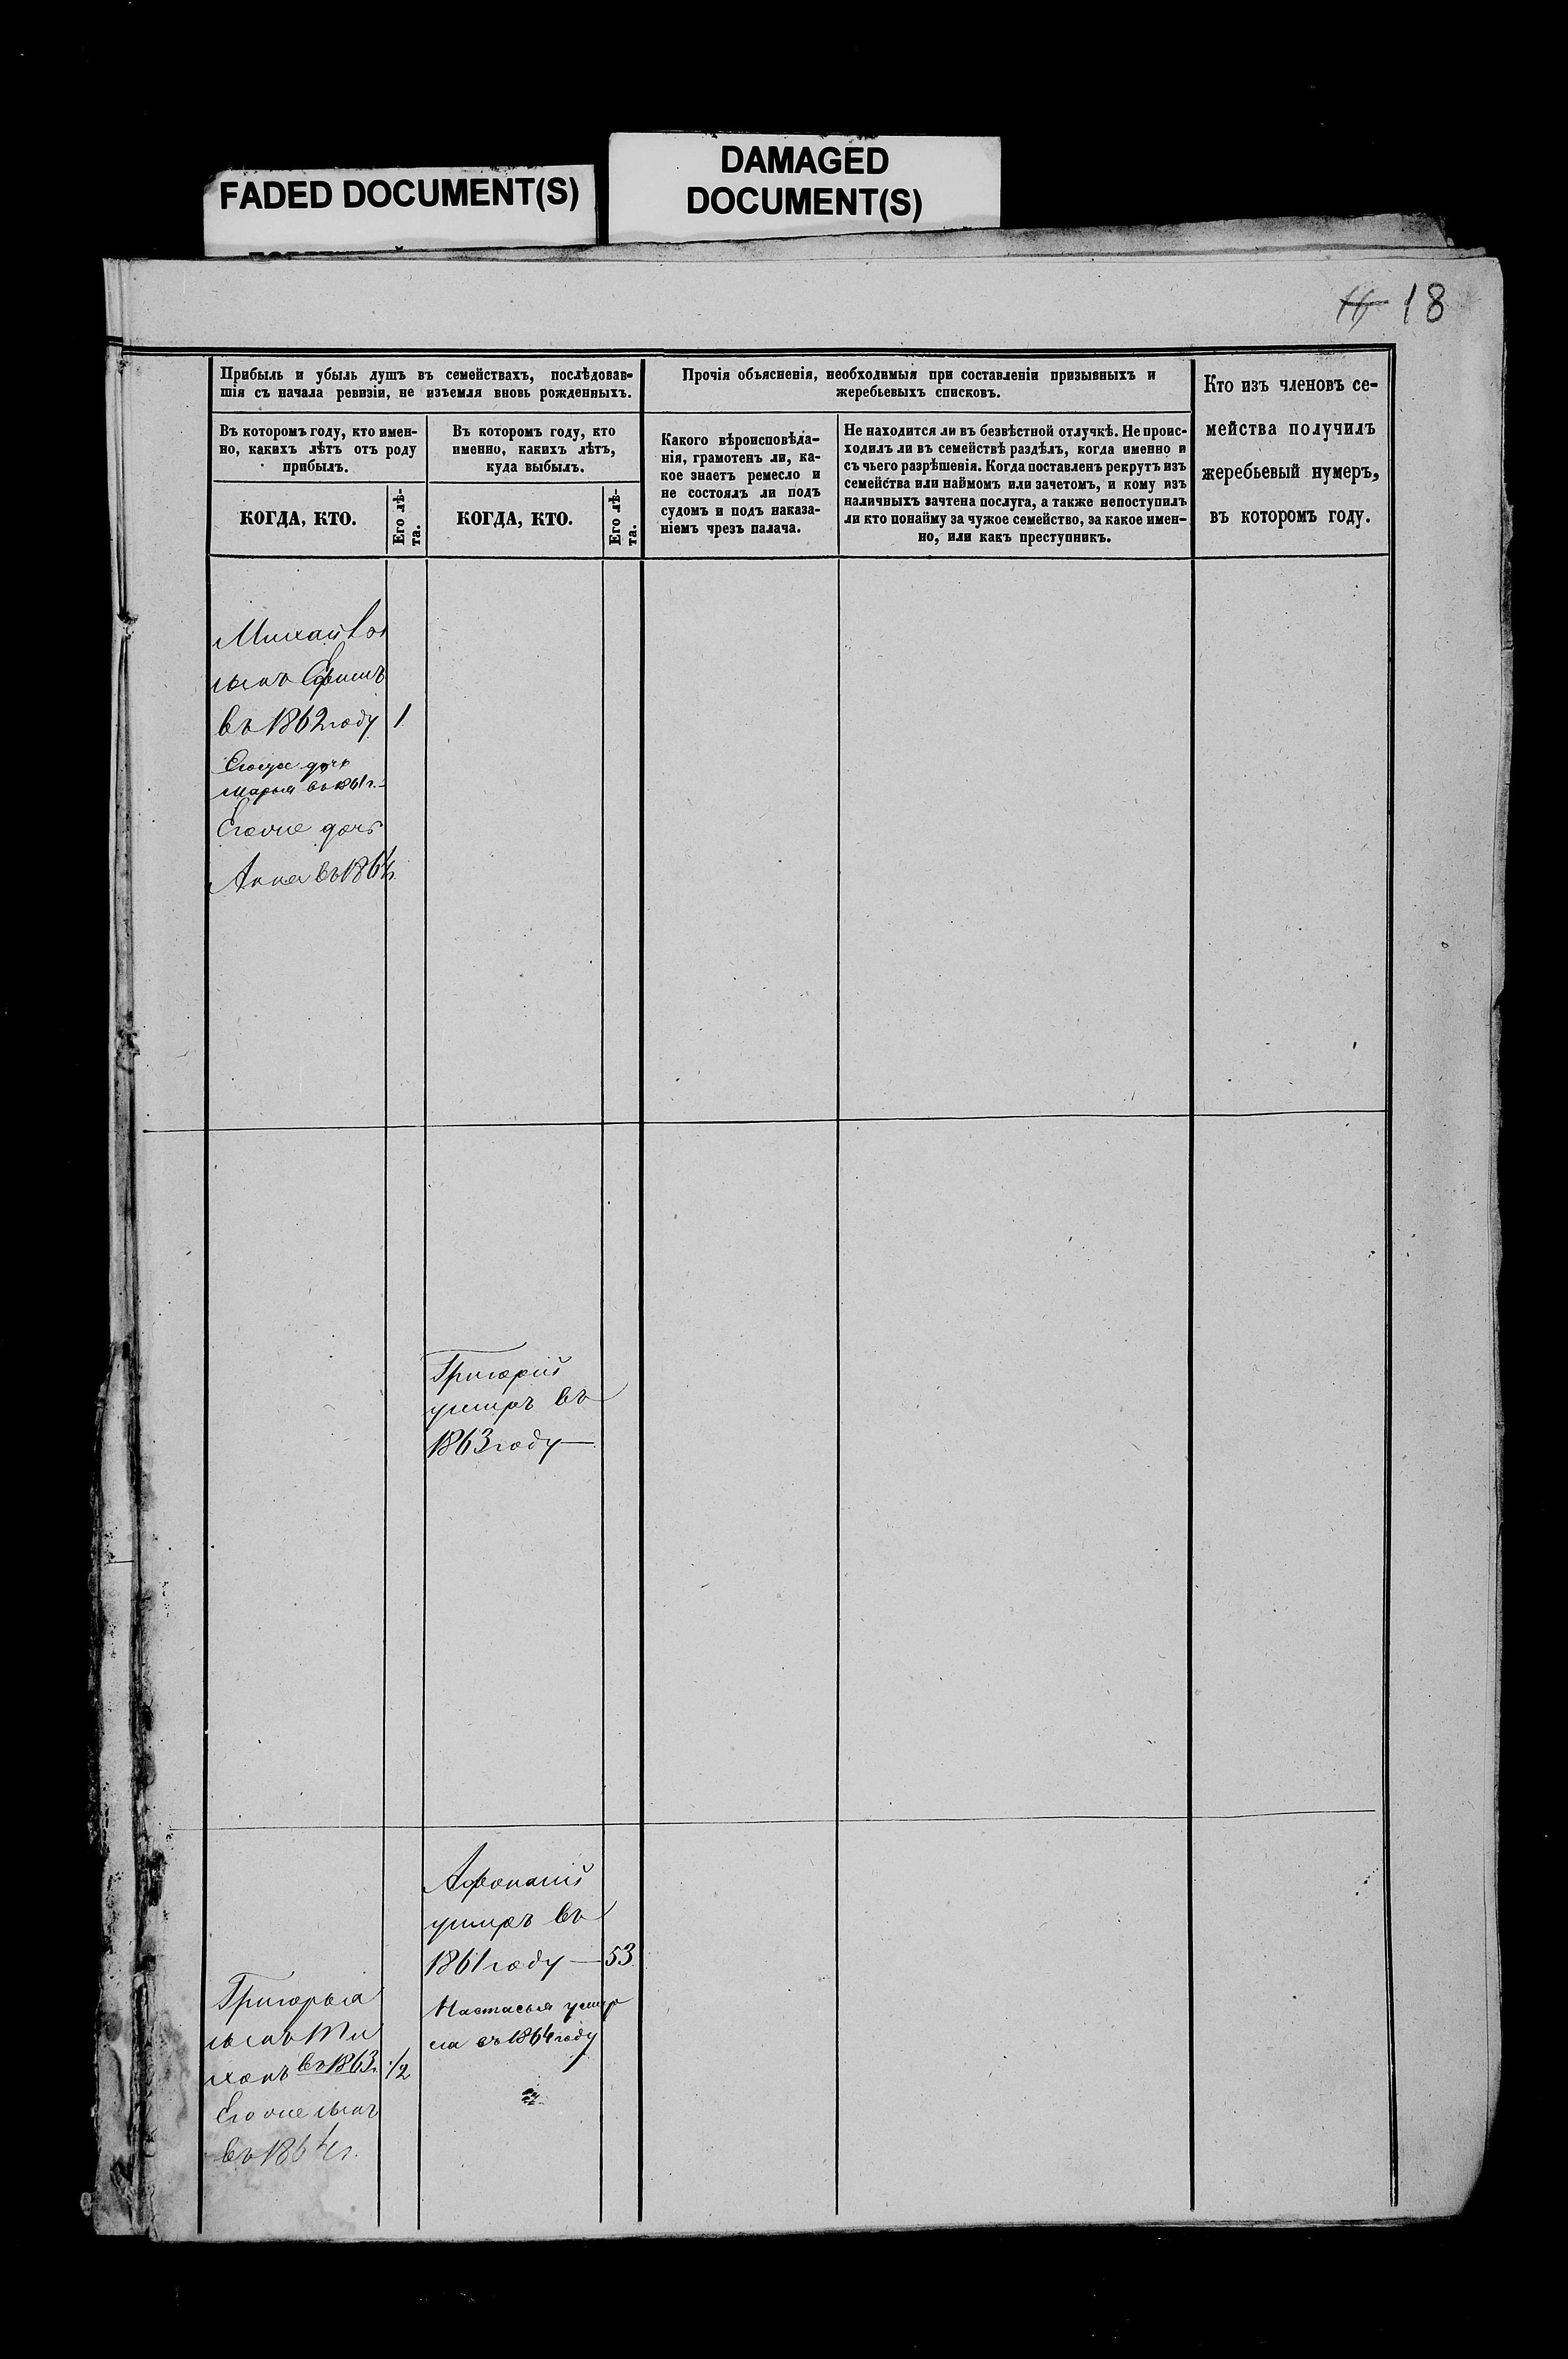 FADED DOCUMENT(S)
DAMAGED
DOCUMENT(S)
18
Прибыль и убыль душъ въ семействахъ, послѣдовав-
шія съ начала ревизіи, не изъемля вновь рожденныхъ.
Прочія объясненія, необходимыя при составленіи призывныхъ и
жеребьевыхъ списковъ.
Кто изъ членовъ се-
мейства получилъ
жеребьевый нумеръ,
въ которомъ году.
Въ которомъ году, кто имен-
но, какихъ лѣтъ отъ роду
прибылъ.
Въ которомъ году, кто
именно, какихъ лѣтъ,
куда выбылъ.
Какого вѣроисповѣда-
нія, грамотенъ ли, ка-
кое знаетъ ремесло и
не состоялъ ли подъ
судомъ и подъ наказа-
ніемъ чрезъ палача.
Не находится ли въ безвѣстной отлучкѣ. Не проис-
ходилъ ли въ семействѣ раздѣлъ, когда именно и
съ чьего разрѣшенія. Когда поставленъ рекрутъ изъ
семейства или наймомъ или зачетомъ, и кому изъ
наличныхъ зачтена послуга, а также непоступилъ
ли кто понайму за чужое семейство, за какое имен-
но, или какъ преступникъ.
КОГДА, КТО.
Его лѣ-
та.
КОГДА, КТО.
Его лѣ-
та.
Михайлы
сынъ Ефимъ
въ 1862 году 1
дочь
Марья въ 1861 г.
Егоже дочь
Анна въ 1864 г.
Григорій
умеръ въ
1863 году —
Афонасій
умеръ въ
1861 году — 53
Настасья умер
ла въ 1864 году
Григорья
сынъ Ти
хонъ въ 1863 г. 1/2
Егоже сынъ
въ 1864 г.